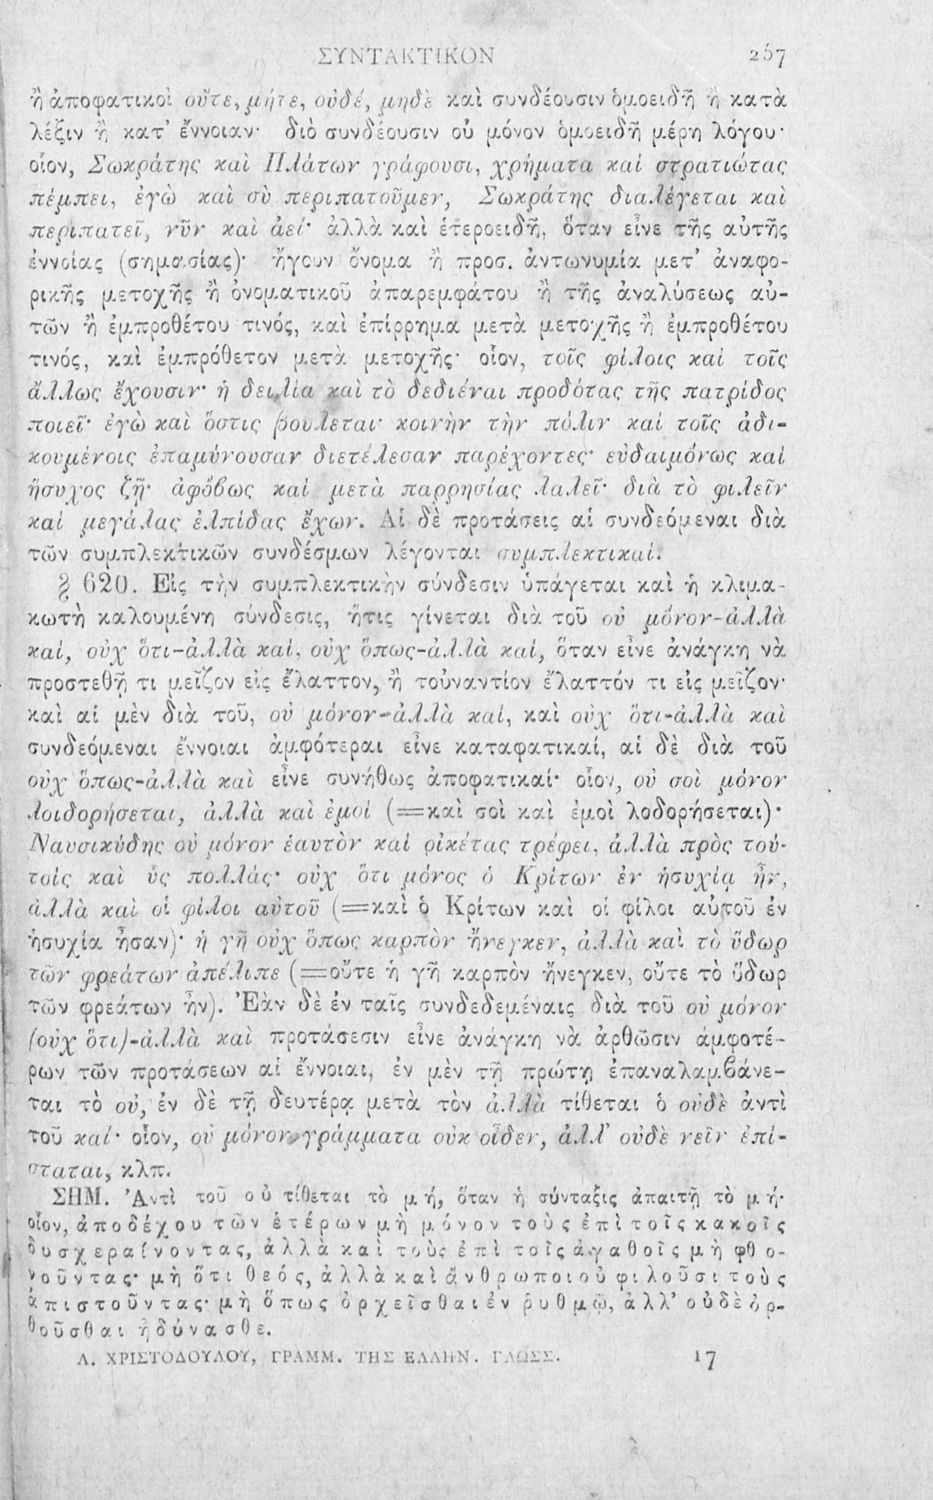 ΣΥΝΤΑΚΤΙΚΟΝ 257
ἢ ἀποφατικοὶ οὔτε, μήτε, οὐδέ, μηδὲ καὶ συνδέουσιν ὁμοειδῆ ἢ κατὰ
λέξιν ἢ κατ’ ἔννοιαν· διὸ συνδέουσιν οὐ μόνον ὁμοειδῆ μέρη λόγου·
οἷον, Σωκράτης καὶ Πλάτων γράφουσι, χρήματα καὶ στρατιώτας
πέμπει, ἐγὼ καὶ σὺ περιπατοῦμεν, Σωκράτης διαλέγεται καὶ
περιπατεῖ, νῦν καὶ ἀεί· ἀλλὰ καὶ ἑτεροειδῆ, ὅταν εἶνε τῆς αὐτῆς
ἐννοίας (σημασίας)· ἤγουν ὄνομα ἢ προσ. ἀντωνυμία μετ’ ἀναφο-
ρικῆς μετοχῆς ἢ ὀνοματικοῦ ἀπαρεμφάτου ἢ τῆς ἀναλύσεως αὐ-
τῶν ἢ ἐμπροθέτου τινός, καὶ ἐπίρρημα μετὰ μετοχῆς ἢ ἐμπροθέτου
τινός, καὶ ἐμπρόθετον μετὰ μετοχῆς· οἷον, τοῖς φίλοις καὶ τοῖς
ἄλλως ἔχουσιν· ἡ δειλία καὶ τὸ δεδιέναι προδότας τῆς πατρίδος
ποιεῖ· ἐγὼ καὶ ὅστις βούλεται· κοινὴν τὴν πόλιν καὶ τοῖς ἀδι-
κουμένοις ἐπαμύνουσαν διετέλεσαν παρέχοντες· εὐδαιμόνως καὶ
ἥσυχος ζῇ· ἀφόβως καὶ μετὰ παρρησίας λαλεῖ· διὰ τὸ φιλεῖν
καὶ μεγάλας ἐλπίδας ἔχων. Αἱ δὲ προτάσεις αἱ συνδεόμεναι διὰ
τῶν συμπλεκτικῶν συνδέσμων λέγονται συμπλεκτικαί.
§ 620. Εἰς τὴν συμπλεκτικὴν σύνδεσιν ὑπάγεται καὶ ἡ κλιμα-
κωτὴ καλουμένη σύνδεσις, ἥτις γίνεται διὰ τοῦ οὐ μόνον-ἀλλὰ
καί, οὐχ ὅτι-ἀλλὰ καί, οὐχ ὅπως-ἀλλὰ καί, ὅταν εἶνε ἀνάγκη νὰ
προστεθῇ τι μεῖζον εἰς ἔλαττον, ἢ τοὐναντίον ἔλαττόν τι εἰς μεῖζον·
καὶ αἱ μὲν διὰ τοῦ, οὐ μόνον-ἀλλὰ καί, καὶ οὐχ ὅτι-ἀλλὰ καὶ
συνδεόμεναι ἔννοιαι ἀμφότεραι εἶνε καταφατικαί, αἱ δὲ διὰ τοῦ
οὐχ ὅπως-ἀλλὰ καὶ εἶνε συνήθως ἀποφατικαί· οἷον, οὐ σοὶ μόνον
λοιδορήσεται, ἀλλὰ καὶ ἐμοί (=καὶ σοὶ καὶ ἐμοὶ λοδορήσεται)·
Ναυσικύδης οὐ μόνον ἑαυτὸν καὶ οἰκέτας τρέφει, ἀλλὰ πρὸς τού-
τοις καὶ ὗς πολλάς· οὐχ ὅτι μόνος ὁ Κρίτων ἐν ἡσυχίᾳ ἦν,
ἀλλὰ καὶ οἱ φίλοι αὐτοῦ (=καὶ ὁ Κρίτων καὶ οἱ φίλοι αὐτοῦ ἐν
ἡσυχίᾳ ἦσαν)· ἡ γῆ οὐχ ὅπως καρπὸν ἤνεγκεν, ἀλλὰ καὶ τὸ ὕδωρ
τῶν φρεάτων ἀπέλιπε (=οὔτε ἡ γῆ καρπὸν ἤνεγκεν, οὔτε τὸ ὕδωρ
τῶν φρεάτων ἦν). Ἐὰν δὲ ἐν ταῖς συνδεδεμέναις διὰ τοῦ οὐ μόνον
(οὐχ ὅτι)-ἀλλὰ καὶ προτάσεσιν εἶνε ἀνάγκη νὰ ἀρθῶσιν ἀμφοτέ-
ρων τῶν προτάσεων αἱ ἔννοιαι, ἐν μὲν τῇ πρώτῃ ἐπαναλαμβάνε-
ται τὸ οὐ, ἐν δὲ τῇ δευτέρᾳ μετὰ τὸν ἀλλὰ τίθεται ὁ οὐδὲ ἀντὶ
τοῦ καί· οἷον, οὐ μόνον γράμματα οὐκ οἶδεν, ἀλλ’ οὐδὲ νεῖν ἐπί-
σταται, κλπ.
ΣΗΜ. Ἀντὶ τοῦ οὐ τίθεται τὸ μή, ὅταν ἡ σύνταξις ἀπαιτῇ τὸ μή·
οἷον, ἀποδέχου τῶν ἑτέρων μὴ μόνον τοὺς ἐπὶ τοῖς κακοῖς
δυσχεραίνοντας, ἀλλὰ καὶ τοὺς ἐπὶ τοῖς ἀγαθοῖς μὴ φθο-
νοῦντας· μὴ ὅτι θεός, ἀλλὰ καὶ ἄνθρωποι οὐ φιλοῦσι τοὺς
ἀπιστοῦντας· μὴ ὅπως ὀρχεῖσθαι ἐν ῥυθμῷ, ἀλλ’ οὐδὲ ὀρ-
θοῦσθαι ἠδύνασθε.
Λ. ΧΡΙΣΤΟΔΟΥΛΟΥ, ΓΡΑΜΜ. ΤΗΣ ΕΛΛΗΝ. ΓΛΩΣΣ. 17